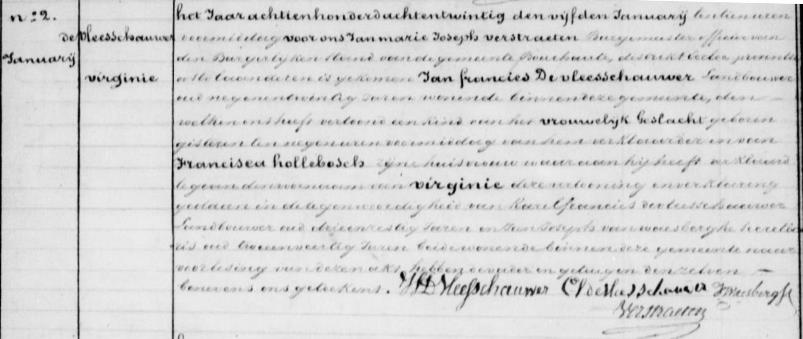 n:º 2.
de vleesschauwer
Januarij
virginie
het Jaar achtienhonderd achtentwintig den vijfden Januarij ten tien uren
voormiddag voor ons Jan marie Joseph verstraeten Burgemeester officier van
den Burgerlyken stand van de gemeente Bouchaute, distrikt Eecloo provintie
oostvlaanderen is gekomen Jan francies De vleesschauwer Landbouwer
oud negenentwintig Jaren wonende binnen deze gemeente, den
welken ons heeft vertoond een kind van het vrouwelijk Geslacht geboren
gisteren ten negen uren voormiddag van hem verklaarder en van
Francisca hollebosch zyne huisvrouw waar aan hij heeft verklaard
te gaan den voornaam van virginie deze vertooning en verklaring
gedaan in de tegenwoordigheid van Karel francies de vleesschauwer
Landbouwer oud drieenzestig Jaren en Jan Joseph van waesberghe
oud tweeenveertig Jaren beide wonende binnen deze gemeente naar
voorlesing van dezen akt hebben de vader en getuigen den zelven
benevens ons geteekent. JF D Vleesschauwer CF de Vleesschauwer
Verstraeten